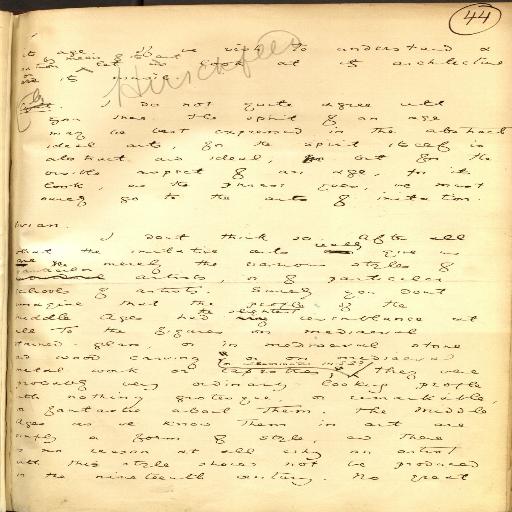 44
its age. If we wish to understand a
let us look at its architecture
or its music.
Hirschfeld
I do not quite agree with
you there. The spirit of an age
may be best expressed in the abstract
ideal arts, for the spirit itself is
abstract and ideal, but for the
visible aspect of an age, for its
look, as the phrase goes, we must
surely go to the arts of imitation.
Vivian.
I don't think so. After all
what the imitative arts really give us
are merely the various styles of
particular artists, or of particular
schools of artists. Surely you don't
imagine that the people of the
middle ages had the slightest resemblance at
all to the figures on mediaeval
stained-glass, or in mediaeval stone
and wood carving, or on mediaeval
metal work or tapestries, they were
probably very ordinary looking people
with nothing grotesque, or remarkable,
or fantastic about them. The middle
ages as we know them in art are
simply a form of style, and there
is no reason at all why an artist
with this style should not be produced
in the nineteenth century. No great